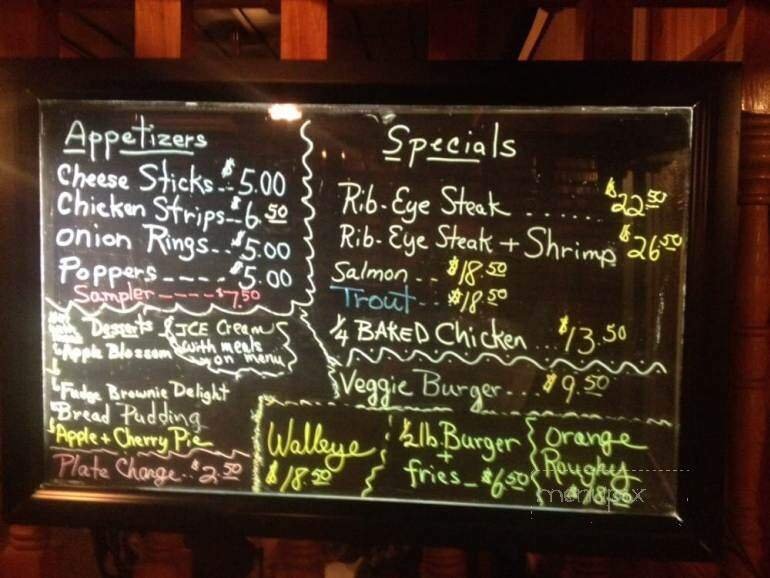 Appetizers
Cheese Sticks.. $5.00
Chicken Strips-- $6.50
onion Rings... $5.00
Poppers ---- $5.00
Sampler ---- $7.50
Desserts
Apple Blossom
ICE Cream
with meals
on menu
Fudge Brownie Delight
Bread Pudding
Apple + Cherry Pie
Plate Change.. $2.50
Specials
Rib-Eye Steak ...... $22.50
Rib-Eye Steak + Shrimp $26.50
Salmon... $18.50
Trout... $18.50
1/4 BAKED Chicken ... $13.50
Veggie Burger.... $9.50
Walleye
$18.50
1/2 lb. Burger
+
fries_ $6.50
Orange
Roughy
$18.50
menupix